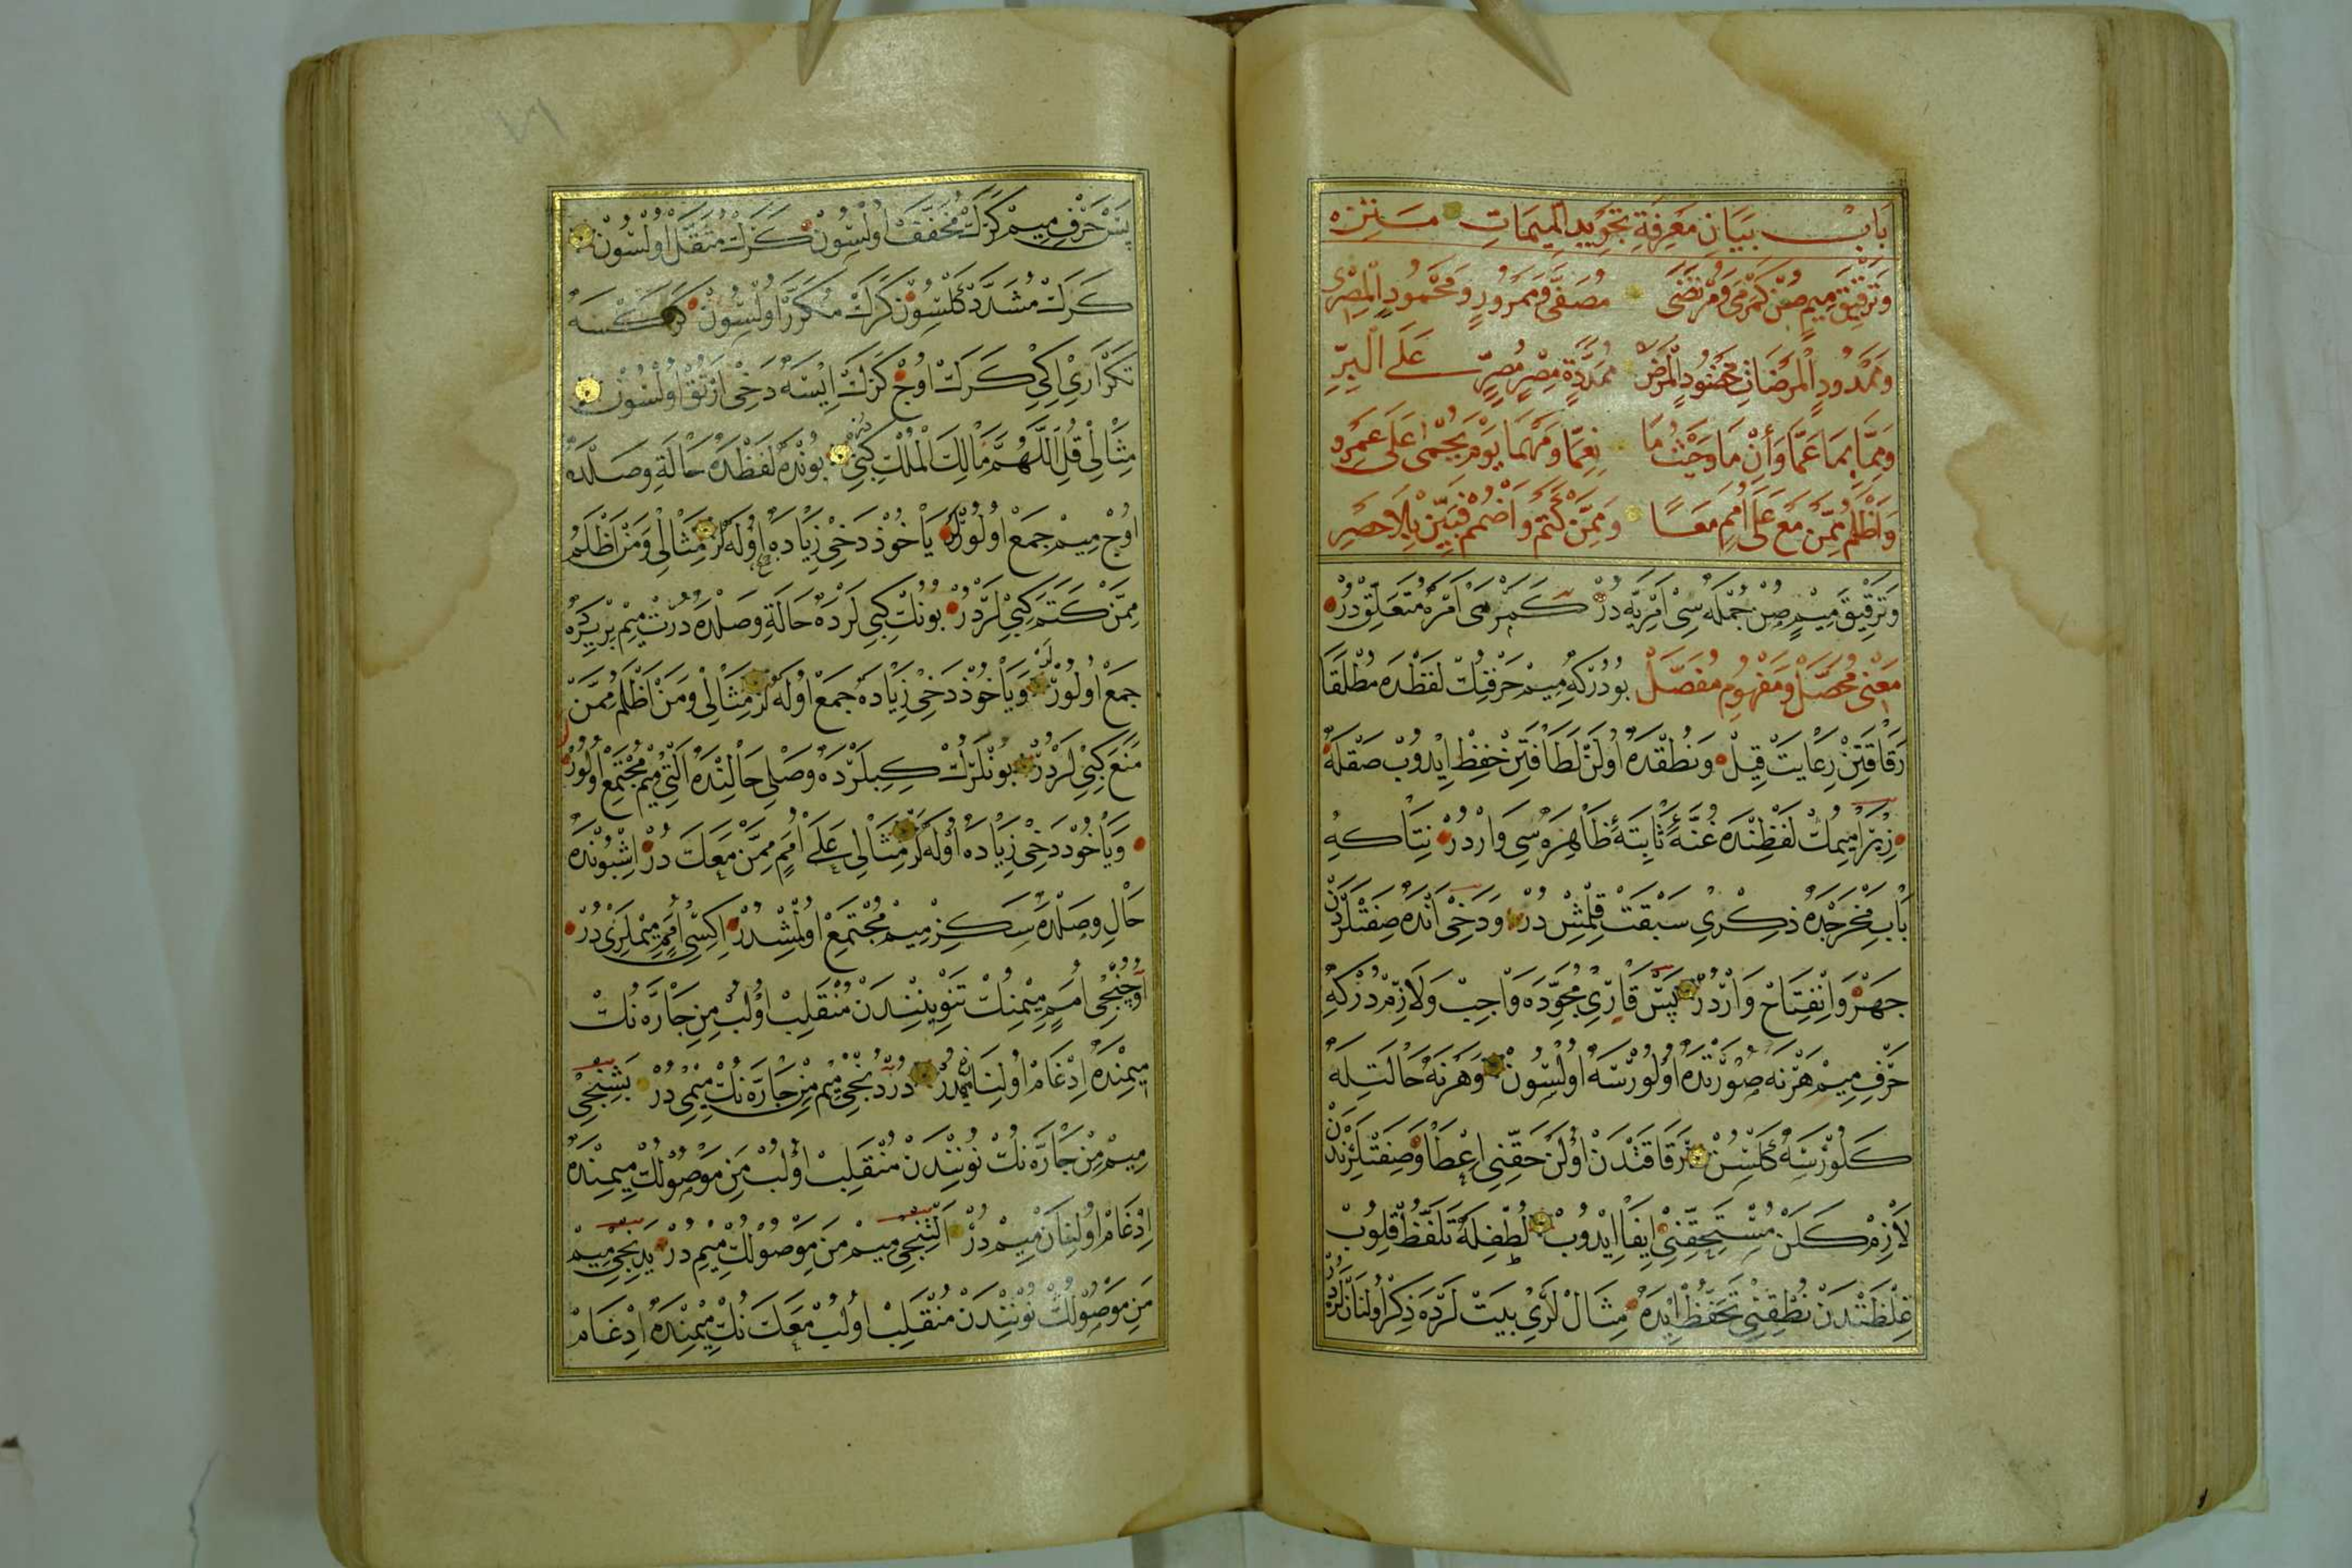 بَابْ بَيَانِ مَعْرِفَةِ تَجْوِيدِ الْمِيمَاتِ مَتِنْ
وَتَرْقِيقَ مِيمٍ صُنْ كَمَرْمَى وَمُرْتَضَى مُصَفًّى وَمَمْرُورٍ وَمَحْمُودٍ الْمِصْرِى
وَمَمْدُودٍ الْمَرْضَاتِ مَخْضُودٍ الْمَرَضْ مُمَدَّدَةٍ مِصْرٍ مُصِرٍّ عَلَى الْبِرِّ
وَمِمَّا بِمَا عَمَّا وَأَنْ مَا وَحَيْثُ مَا نِعِمَّا وَمَهْمَا يَوْمَ يُحْمَى عَلَى عَمْرِو
وَأَظْلَمُ مِمَّنْ مَعْ عَلَى أُمَمٍ مَعًا وَمِمَّنْ كَتَمْ وَاضْمُمْ فَبَيِّنْ بِلَا حَصْرِ
وَتَرْقِيقَ مِيمٍ صُنْ جُمْلَه سِى اَمْرِيَّه دُرْ كَمَرْمَى اَمْرَه مُتَعَلِّقْ دُرْ
مَعْنِى مُحَصَّلْ وَمَفْهُومِ مُفَصَّلْ بُودُرْكِه مِيمْ حَرْفِنِكْ لَفْظَنْدَه مُطْلَقَا
رَقَاقَتِنْ رِعَايَتْ قِيلْ وَنُطْقَنْدَه اُولَنْ لَطَافَتِنْ حِفِظْ اِيدُوبْ صَقْلَه
زِيرَا مِيمِكْ لَفْظِنْدَه غُنَّهٔ ثَابِتَهٔ ظَاهِرَه سِى وَارْدُرْ نِتَاكِه
بَابِ مَخْرَجْدَه ذِكْرِى سَبْقَتْ قِلْمِشْ دُرْ وَدَخِى اَنْدَه صِفَتْلَرْدَنْ
جَهْرْ وَانْفِتَاحْ وَارْدُرْ پَسْ قَارِئِ مُجَوِّدَه وَاجِبْ وَلَازِمْ دُرْكِه
حَرْفِ مِيمْ هَرْ نَه صُورَتْدَه اُولُورْسَه اُولْسُونْ وَهَرْ نَه حَالَتِلَه
كَلُورْسَه كَلْسُنْ رَقَاقَتْدَنْ اُولَنْ حَقِّنِى اِعْطَا وَصِفَتْلَرِنْدَنْ
لَازِمْ كَلَنْ مُسْتَحَقِّنِى اِيفَا اِيْدُوبْ لُطْفِلَه تَلَفُّظْ قِلُوبْ
غِلْظَتْدَنْ نُطْقِنِى تَحَفُّظْ اِيْدَه مِثَالْ لَرِى بَيْتْ لَرْدَه ذِكْرْ اُولُنَانْ لَرْدُرْ
پَسْ حَرْفِ مِيمْ كَرَكْ مُخَفَّفْ اُولْسُونْ كَرَكْ مُثَقَّلْ اُولْسُونْ
كَرَكْ مُشَدَّدْ كَلْسُونْ كَرَكْ مُكَرَّرْ اُولْسُونْ كَرَكْسَه
تَكْرَارِى اِكِى كَرَكْ اُوچْ كَرَكْ اِيسَه دَخِى اَرْتُقْ اُولْسُونْ
مِثَالِى قُلِ اللَّهُمَّ مَالِكَ الْمُلْكِ كِبِى بُونْدَه لَفْظَنْدَه حَالَتِ وَصَلْدَه
اُوچْ مِيمْ جَمَعْ اُولُورْ يَاخُوذْ دَخِى زِيَادَه اُولَه لَرْ مِثَالِى وَمَنْ اَظْلَمُ
مِمَّنْ كَتَمَ كِبِى لَرْدُرْ بُونُكْ كِبِى لَرْدَه حَالَتِ وَصَلْدَه دُرْتْ مِيمْ بِرْ يِرَه
جَمَعْ اُولُورْ وَيَاخُوذْ دَخِى زِيَادَه جَمَعْ اُولَه لَرْ مِثَالِى وَمَنْ اَظْلَمُ مِمَّنْ
مَنَعَ كِبِى لَرْدُرْ بُونْلَرُكْ كِبِيلَرْدَه وَصْلِى حَالِنْدَه اَلْتِى مِيمْ مُجْتَمِعْ اُولُورْ
وَيَاخُوذْ دَخِى زِيَادَه اُولَه لَرْ مِثَالِى عَلَى اُمَمٍ مِمَّنْ مَعَكَ دُرْ اِشْبُونْدَه
حَالِ وَصِلْدَه سَكِزْ مِيمْ مُجْتَمِعْ اُولْمِشْدُرْ اِكِيسِى اُمَمٍ مِيمْلَرِى دُرْ
اُوچُنْجِى اُمَمٍ مِيمْنِكْ تَنْوِينِنْدَنْ مُنْقَلِبْ اُولُبْ مِنِ جَارَّه نُكْ
مِيمِنْدَه اِدْغَامْ اُولُنَانْ مِيمْدُرْ دُرْدُنْجِى مِيمْ مِنْ جَارَّه نُكْ مِيمِى دُرْ بَشِنْجِى
مِيمْ مِنْ جَارَّه نُكْ نُونِنْدَنْ مُنْقَلِبْ اُولُبْ مَنِ مَوْصُولُكْ مِيمِنْدَه
اِدْغَامْ اُولُنَانْ مِيمْ دُرْ اَلْتِنْجِى مِيمْ مَنِ مَوْصُولُكْ مِيمِ دُرْ يَدِنْجِى مِيمْ
مَنِ مَوْصُولُكْ نُونِنْدَنْ مُنْقَلِبْ اُولُبْ مَعَكَ نُكْ مِيمِنْدَه اِدْغَامْ